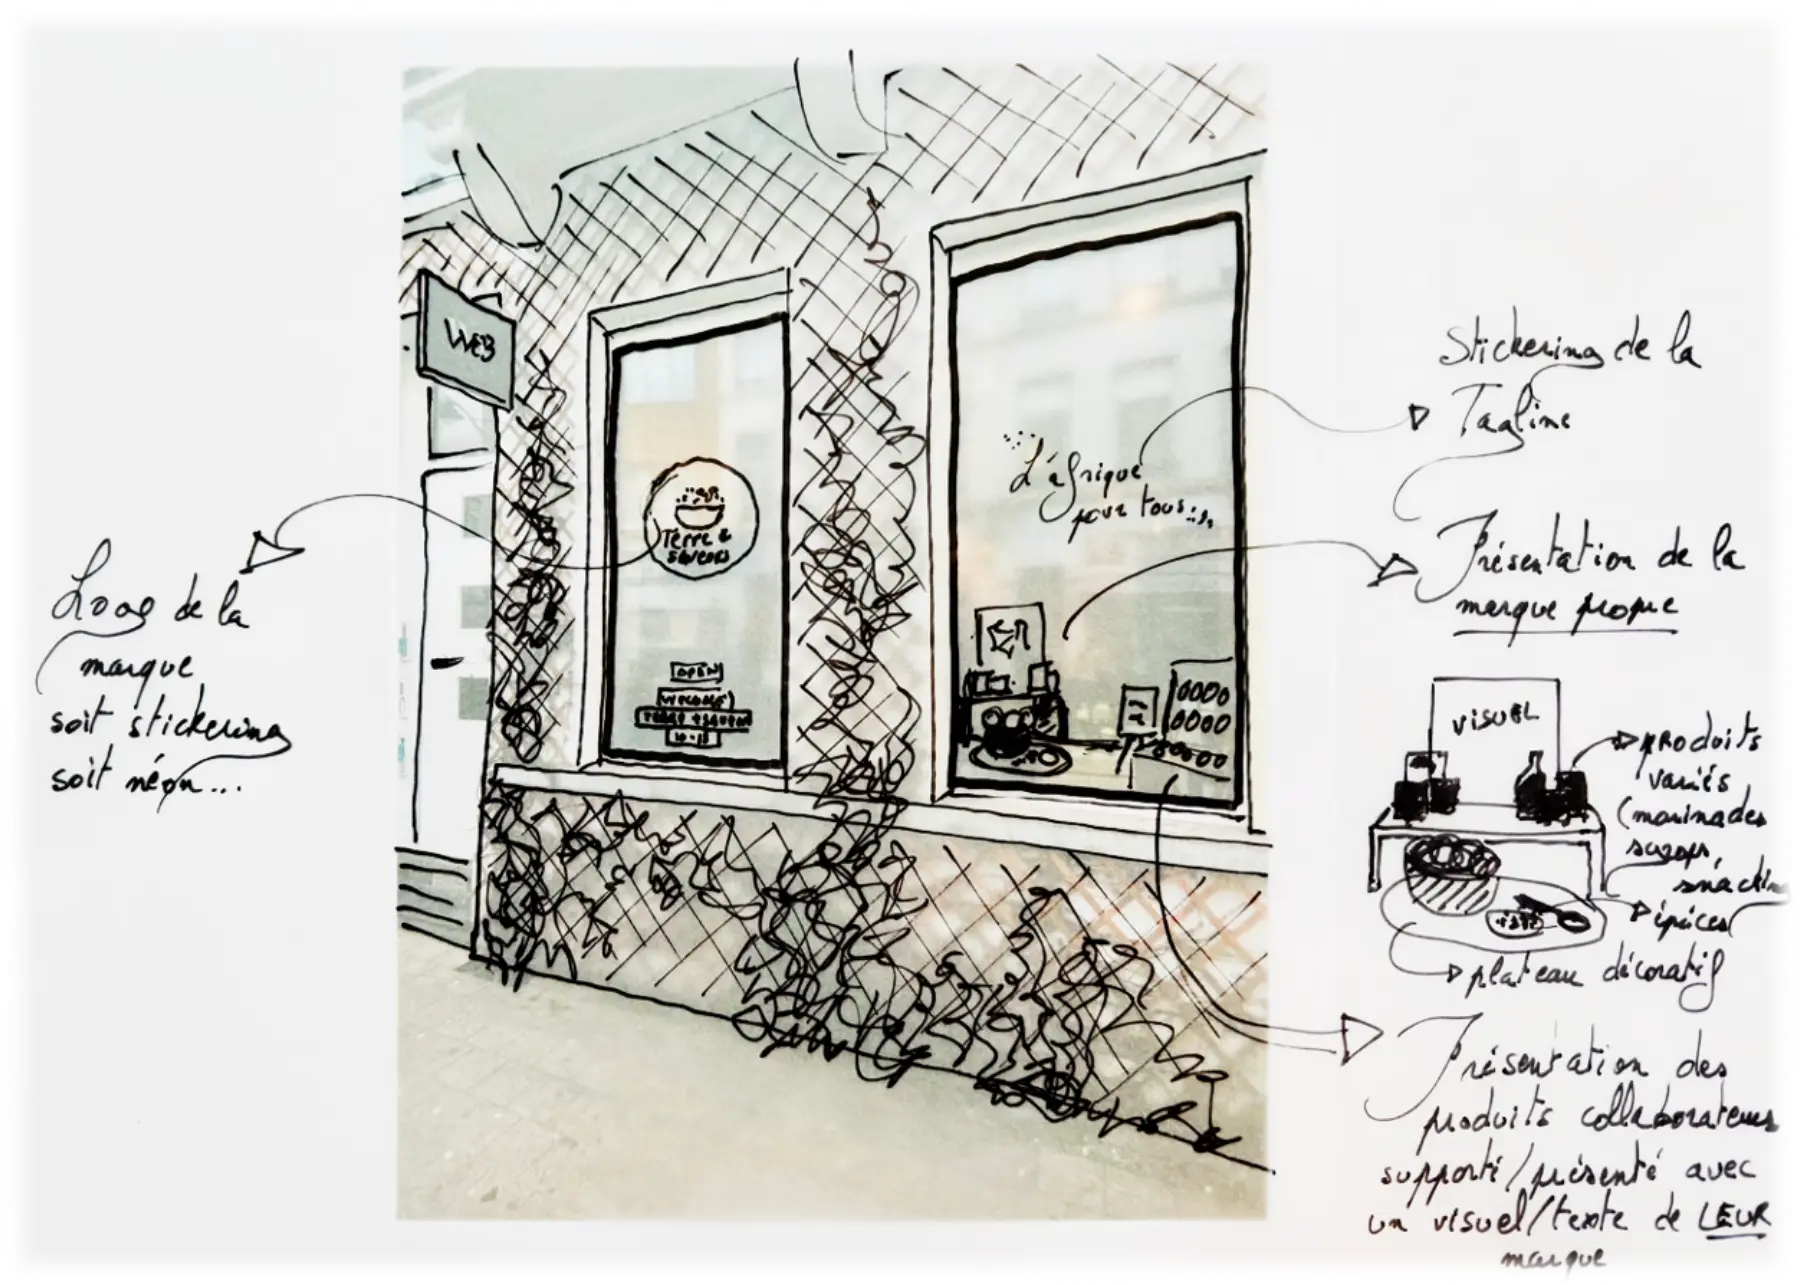 WEB
Logo de la
marque
soit stickering
soit néon...
Terre &
saveurs
OPEN
10-18
L'afrique
pour tous
Stickering de la
Tagline
Présentation de la
marque propre
VISUEL
produits
variés
(marinades
sirops,
snacking
épices
plateau décoratif
Présentation des
produits collaborateurs
supporté/présenté avec
un visuel/texte de LEUR
marque